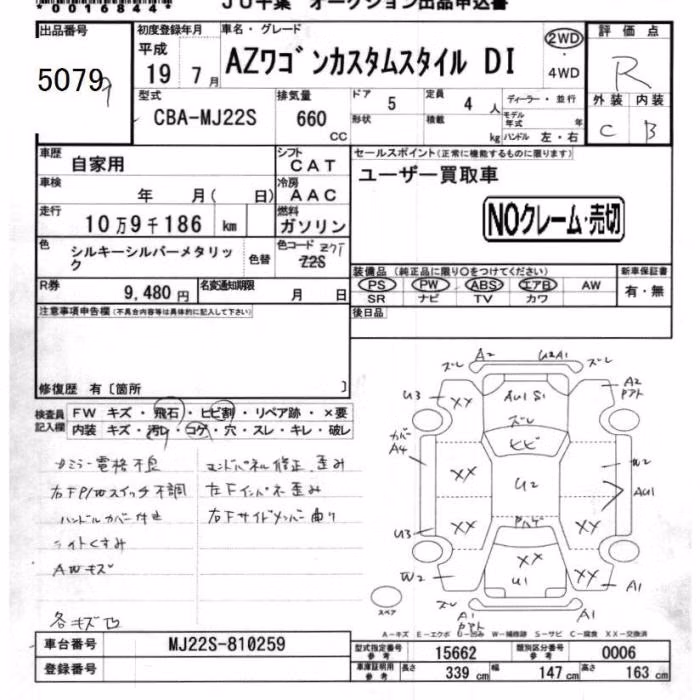 *00016844*
JU千葉 オークション出品申込書
出品番号
5079
初度登録年月
平成
19年7月
車名・グレード
AZワゴンカスタムスタイル DI
2WD
・
4WD
評価点
R
外装 内装
C B
型式
CBA-MJ22S
排気量
660
CC
ドア 5
形状
定員 4 人
積載 kg
ディーラー・並行
モデル年式 年
ハンドル 左・右
車歴
自家用
シフト
CAT
車検
年 月( 日)
冷房
AAC
走行
10万9千186 km
燃料
ガソリン
色
シルキーシルバーメタリック
色替
色コード
Z2S
R券
9,480円
名変通知期限
月 日
セールスポイント(正常に機能するものに限ります)
ユーザー買取車
NOクレーム・売切
装備品 (純正品に限り○をつけてください)
PS PW ABS エアB AW
SR ナビ TV カワ
新車保証書
有・無
後日品
注意事項申告欄(不具合内容等は具体的に記入して下さい)
修復歴 有〔箇所 〕
検査員
記入欄
FW キズ・飛石・ヒビ割・リペア跡・×要
内装 キズ・汚れ・コゲ・穴・スレ・キレ・破レ
カミラー電格不良
コアパネル修正、歪み
右FP/Wスイッチ不調
左Fインパネ歪み
ハンドルカバー付き
右Fサイドメンバー曲り
ライトくすみ
AWキズ
各キズ凹
ズレ A2 U2A1 ズレ
U3 XX AU1 S1 A2
ズレ
ヒビ
カバー
A4
XX U2 W2
AU1
U3 XX XX
W2 XX U1 XX A1
ズレ A1 A1
スペア
A-キズ E-エクボ U-凹み W-補修跡 S-サビ C-腐食 XX-交換済
車台番号
MJ22S-810259
登録番号
型式指定番号
参考
15662
類別区分番号
参考
0006
車庫証明用
参考
長さ 339 cm 幅 147 cm 高さ 163 cm